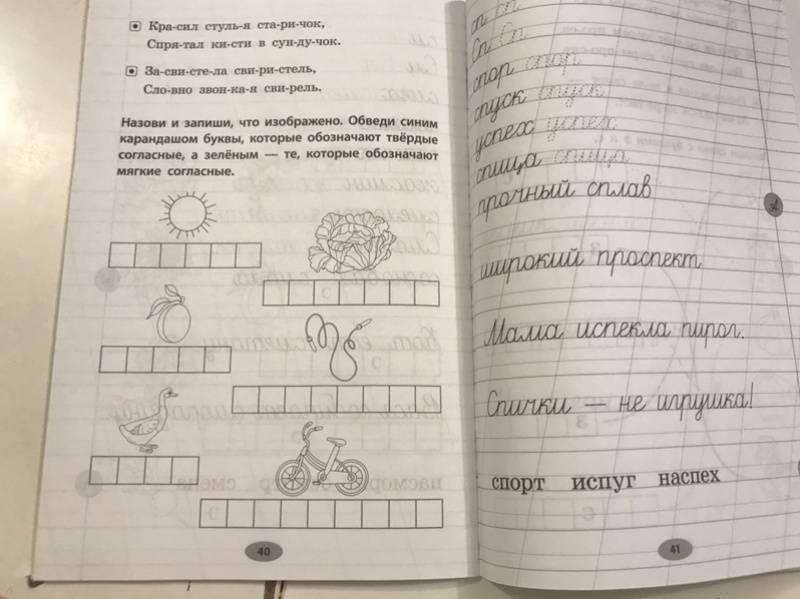 Кра-сил стуль-я ста-ри-чок,
Спря-тал ки-сти в сун-ду-чок.
За-сви-сте-ла сви-ри-стель,
Сло-вно звон-ка-я сви-рель.
Назови и запиши, что изображено. Обведи синим
карандашом буквы, которые обозначают твёрдые
согласные, а зелёным — те, которые обозначают
мягкие согласные.
40
сп сп
Сп Сп
спор спор
спуск спуск
успех успех
спица спица
прочный сплав
широкий проспект
Мама испекла пирог.
Спички — не игрушка!
спорт испуг наспех
41